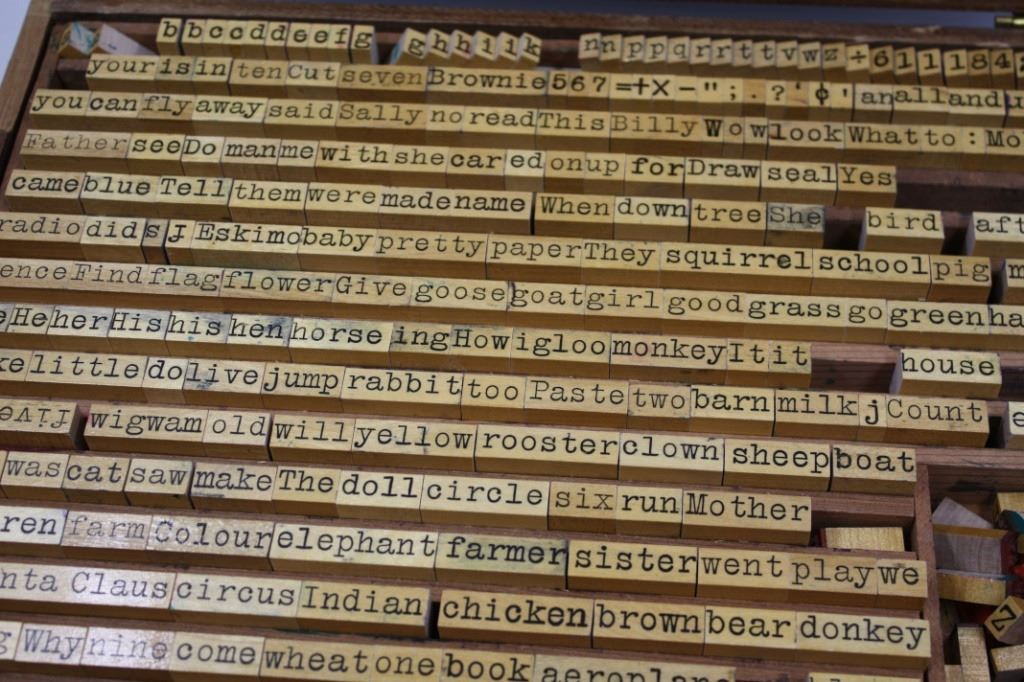 bbccddeefg ghhiik nnppqrrttvwz+611184
your is in ten Cut seven Brownie 567 =+X-";.?'¢' an all and
you can fly away said Sally no read This Billy Wow look What to : Mo
Father see Do man me with she car ed on up for Draw seal Yes
came blue Tell them were made name When down tree She bird aft
radio did s J Eskimo baby pretty paper They squirrel school pig m
ence Find flag flower Give goose goat girl good grass go green ha
He her His his hen horse ing How igloo monkey It it house
ke little do live jump rabbit too Paste two barn milk j Count e
Five wigwam old will yellow rooster clown sheep boat
was cat saw make The doll circle six run Mother
ren farm Colour elephant farmer sister went play we
nta Claus circus Indian chicken brown bear donkey
g Why nine come wheat one book aeroplane